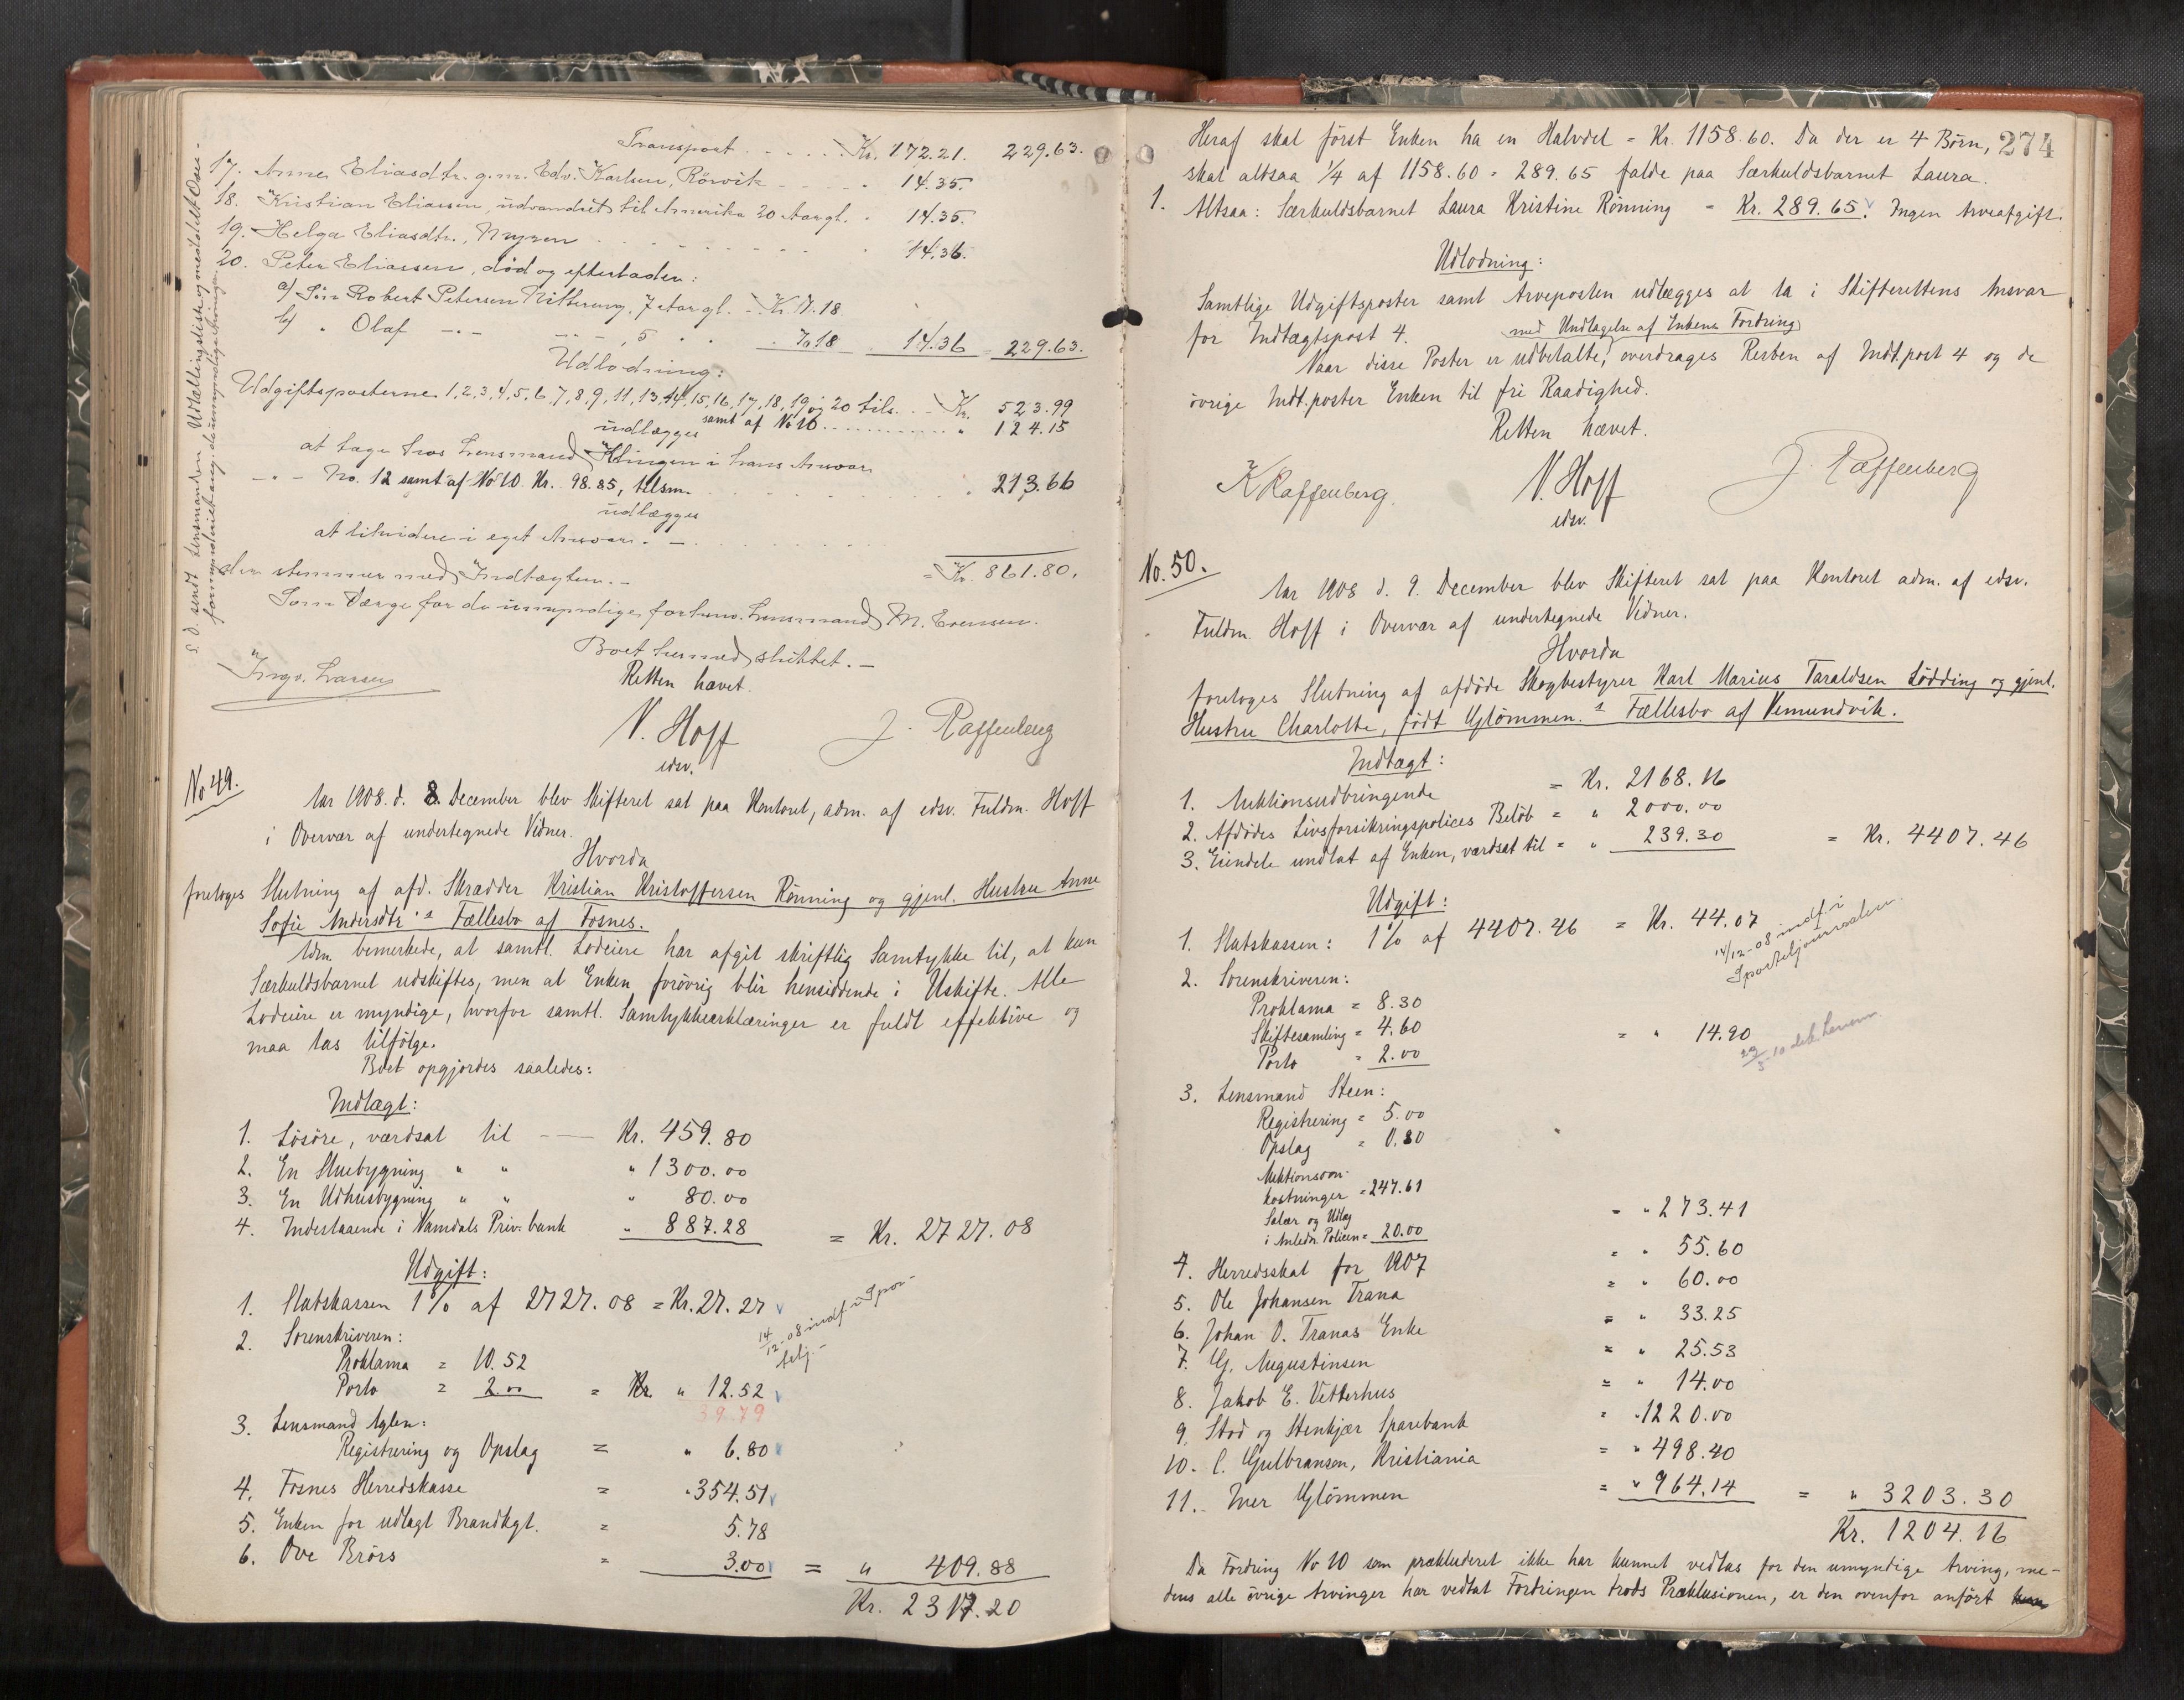 Transport . . . . . Kr. 172.21. 229.63.
17. Anne Eliasdtr. g.m. Edv. Karlsen, Rörvik - - - - - 14.35.
18. Kristian Eliassen, udvandret til Amerika 20 Aar gl. . 14.35.
19. Helga Eliasdtr., . . . . . 14.36.
20. Peter Eliassen, död og efterlader:
a) Sön Robert Petersen 7 Aar gl. - Kr. 7.18
b) " Olaf -.- -.- , 5 . . 7.18 14.36 = 229.63.
Udlodning:
Udgiftsposterne 1,2,3,4,5,6,7,8,9,11,13,14,15,16,17,18,19 og 20 tils. . . Kr. 523.99
samt af No 10 . . . . . . . . . . " 124.15
udlægges
at tage hos Lensmand Klingen i hans Ansvar
-.- No. 12 samt af No 10 Kr. 98.85, tilsm. . . . . . . 213.66
udlægges
at likvidere i eget Ansvar. -. . . . . . .
der stemmer med Indtægten. - = Kr. 861.80.
Som Værge for de umyndige forhenv. Lensmand M. Evensen.
Boet hermed sluttet. -
Retten hævet.
Ingv. Larsen
N. Hoff
edsv.
J. Raffenberg
S. D. sendt Lensmanden Udlællingsliste og meddelt Over-
formynderiet ang. de umyndige Arvinger.
No 49.
Aar 1908. d. 8. December blev Skifteret sat paa Kontoret, adm. af edsv. Fuldm. Hoff
i Overvær af undertegnede Vidner.
Hvorda
foretoges Slutning af afd. Skrædder Kristian Kristoffersen Rönning og gjenl. Hustru Anne
Sofie Andersdtr's Fællesbo af Fosnes.
Adm. bemerkede, at samtl. Lodeiere har afgit skriftlig Samtykke til, at kun
Særkuldsbarnet udskiftes, men at Enken forövrig blir hensiddende i Uskifte. Alle
Lodeiere er myndige, hvorfor samtl. Samtykkeerklæringer er fuldt effektive og
maa tas tilfölge.
Boet opgjordes saaledes:
Indtægt:
1. Lösöre, værdsat til -- Kr. 459.80
2. En Stuebygning " " " 1300.00
3. En Udhusbygning " " " 80.00
4. Indestaaende i Namdals Priv. bank " 887.28 = Kr. 2727.08
Udgift:
1. Statskassen 1% af 2727.08 = Kr. 27.27
14/12-08 indf. i Spor-
telj.-
2. Sorenskriveren:
Proklama = 10.52
Porto = 2.00 = Kr. " 12.52
39.79
3. Lensmand Aglen:
Registrering og Opslag = " 6.80
4. Fosnes Herredskasse = " 354.51
5. Enken for udlagt Brandkgt. = 5.78
6. Ove Brörs = 3.00 = " 409.88
Kr. 2317.20
274
Heraf skal först Enken ha en Halvdel = Kr. 1158.60. Da der er 4 Börn,
skal altsaa 1/4 af 1158.60 = 289.65 falde paa Særkuldsbarnet Laura.
1. Altsaa: Særkuldsbarnet Laura Kristine Rönning = Kr. 289.65. Ingen Arveafgift.
Udlodning:
Samtlige Udgiftsposter samt Arveposten udlægges at ta i Skifterettens Ansvar
for Indtægtspost 4.
med Undtagelse af Enkens Fordring
Naar disse Poster er udbetalte, overdrages Resten af Indt.post 4 og de
övrige Indt.poster Enken til fri Raadighed.
Retten hævet.
K Raffenberg.
N. Hoff
edsv.
J. Raffenberg
No. 50.
Aar 1908 d. 9. December blev Skifteret sat paa Kontoret adm. af edsv.
Fuldm. Hoff i Overvær af undertegnede Vidner.
Hvorda
foretoges Slutning af afdöde Skogbestyrer Karl Marius Taraldsen Lödding og gjenl.
Hustru Charlotte, födt Glömmen.s Fællesbo af Vemundvik.
Indtægt:
1. Auktionsudbringende = Kr. 2168.16
2. Afdödes Livsforsikringspolices Belöb = " 2000.00
3. Eiendele undtat af Enken, værdsat til = " 239.30 = Kr. 4407.46
Udgift:
1. Statskassen: 1% af 4407.46 = Kr. 44.07
14/12-08 indf. i
Sporteljournalen.
2. Sorenskriveren:
Proklama = 8.30
Skiftesamling = 4.60
Porto = 2.00
= " 14.90
3. Lensmand Steen:
Registrering = 5.00
Opslag = 0.80
Auktionsom-
kostninger = 247.61
Salær og Udlæg
i Anledn. Policen = 20.00
= " 273.41
4. Herredsskat for 1907 = " 55.60
5. Ole Johansen Trana = " 60.00
6. Johan O. Tranas Enke = " 33.25
7. G. Augustinsen = " 25.53
8. Jakob E. Vetterhus = " 14.00
9. Stod og Stenkjær Sparebank = " 1220.00
10. C. Gulbransen, Kristiania = " 498.40
11. Iver Glömmen = " 964.14 = " 3203.30
Kr. 1204.16
Da Fordring No 10 som prækluderet ikke har kunnet vedtas for den umyndige Arving, me-
dens alle övrige Arvinger har vedtat Fordringen trods Præklusionen, er den ovenfor anfört